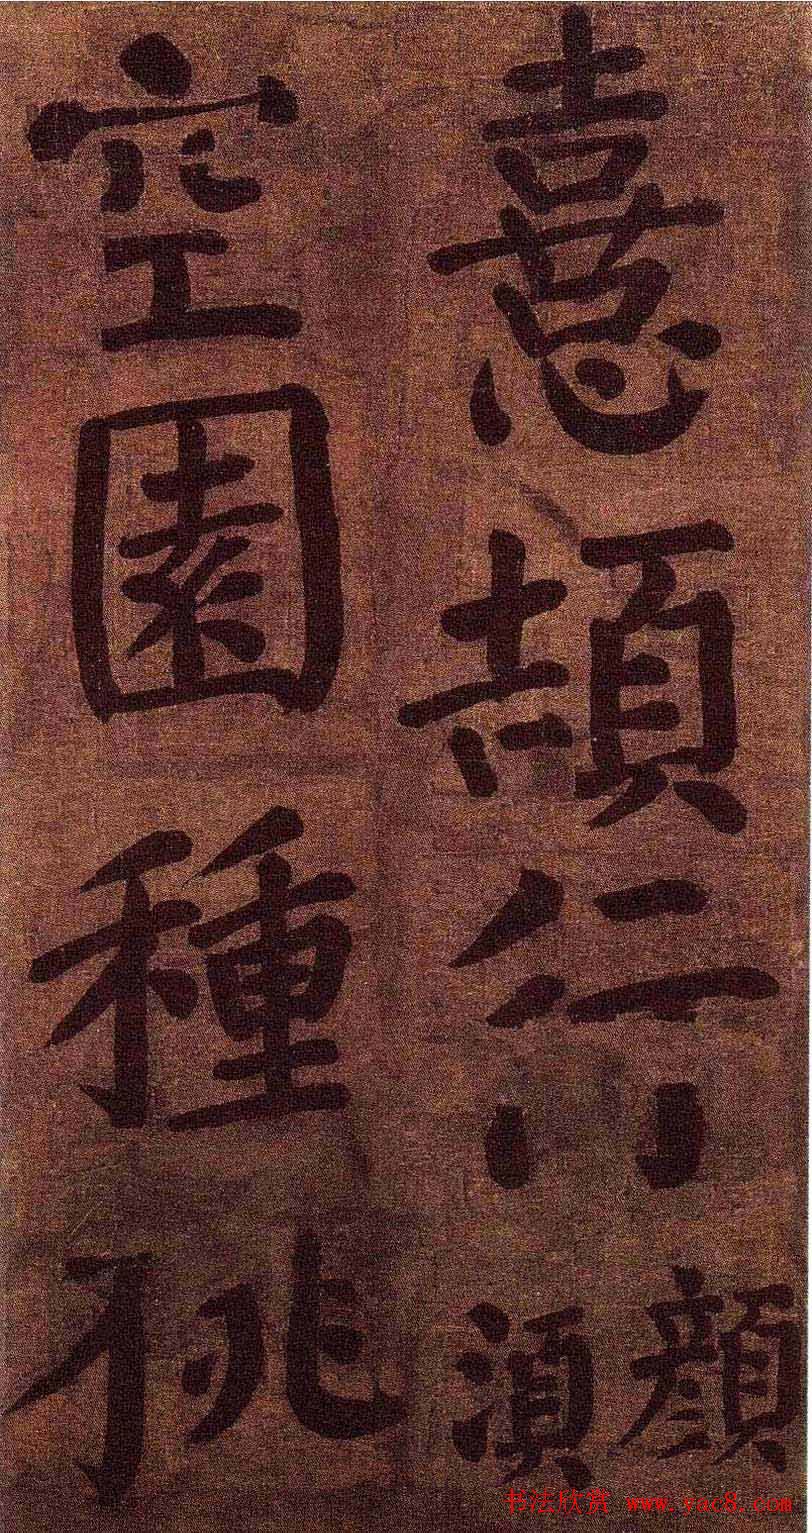 憙頡行
顔湏
空園種桃
书法欣赏 www.yac8.com